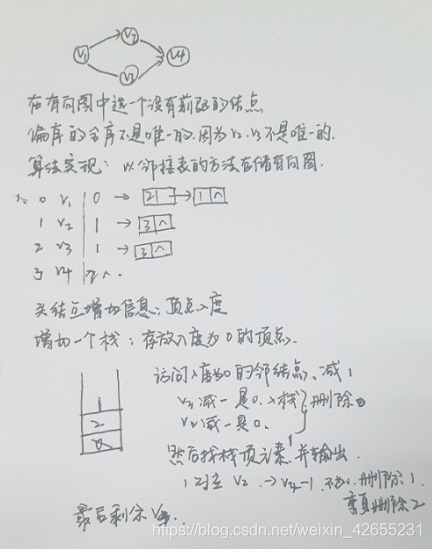 V1 V2 V3 V4
在有向图中选一个没有前驱的结点
偏序的全序不是唯一的.因为V2.V3不是唯一的.
算法实现: 以邻接表的方法存储有向图.
0 V1 0 → 2 → 1 ^
1 V2 1 → 3 ^
2 V3 1 → 3 ^
3 V4 2 ^.
头结点增加信息:顶点入度
增加一个栈:存放入度为0的顶点.
访问入度为0的邻结点、减1
V3减一是0.入栈 删除0
V2减一是0.
1
2
0
然后找栈顶元素,并输出.
1对应V2 → V4-1 不为0.删除1.
删除2
最后剩余V4.
https://blog.csdn.net/weixin_42655231